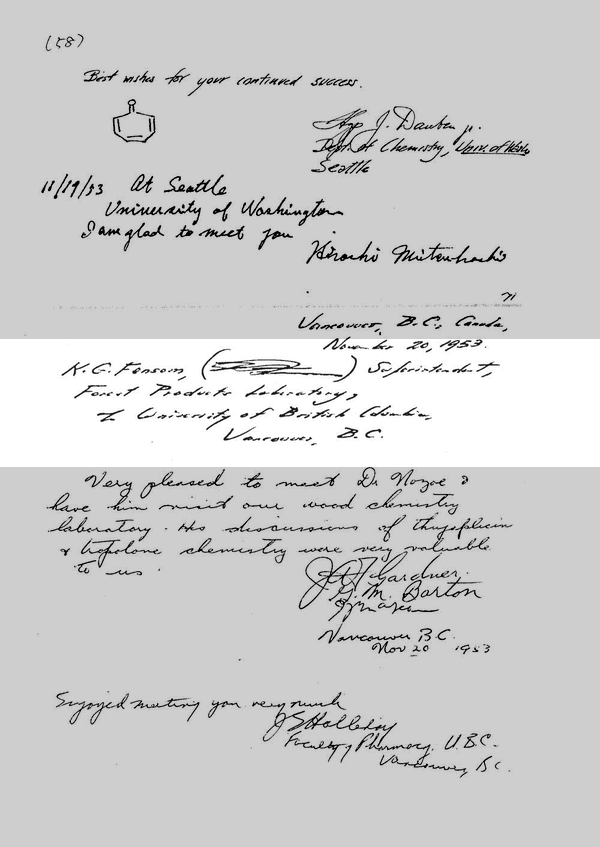 (58)
Best wishes for your continued success.
J. Dauben Jr.
Dept. of Chemistry, Univ. of Wash.
Seattle
11/19/53 At Seattle
University of Washington
I am glad to meet you
Hiroshi Mitsuhashi
71
Vancouver, B.C., Canada,
November 20, 1953.
K. G. Fensom, ( ) Superintendent,
Forest Products Laboratory,
University of British Columbia,
Vancouver, B.C.
Very pleased to meet Dr Nozoe &
have him visit our wood chemistry
laboratory. His discussions of thujaplicin
& tropolone chemistry were very valuable
to us.
J A F Gardner.
G. M. Barton
Vancouver B.C.
Nov 20 1953
Enjoyed meeting you very much
Faculty of Pharmacy, U.B.C.
Vancouver, B.C.